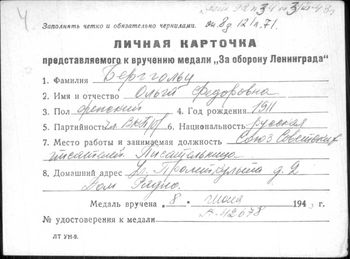 4
Заполнять четко и обязательно чернилами.
ЛИЧНАЯ КАРТОЧКА
представляемого к вручению медали „За оборону Ленинграда"
1. Фамилия Берггольц
2. Имя и отчество Ольга Федоровна
3. Пол женский 4. Год рождения 1911
5. Партийность чл ВКП(б) 6. Национальность русская
7. Место работы и занимаемая должность Союз Советских
писателей Писательница
8. Домашний адрес ул. Пролеткульта д. 2
Дом Радио.
Медаль вручена „8" июня 1943 г.
№ удостоверения к медали А-42678
ЛТ УН-9.